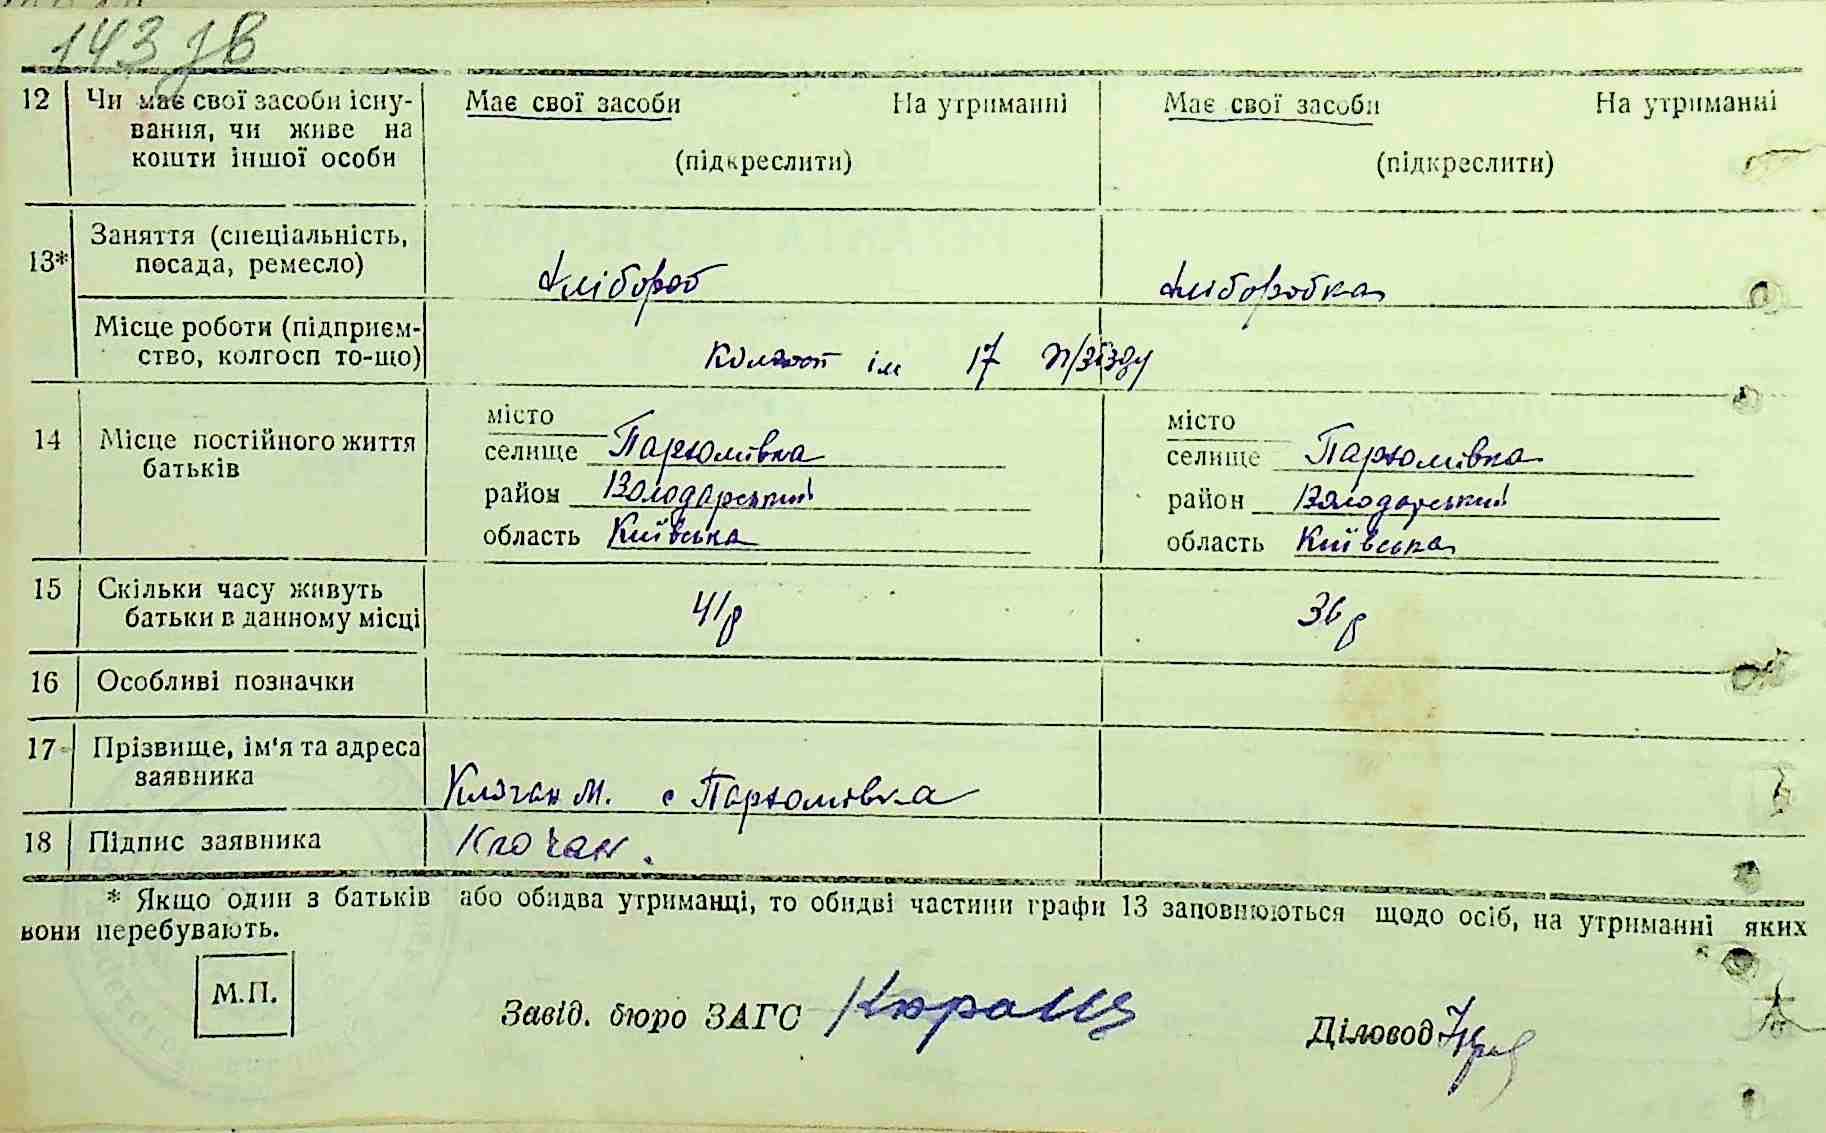 143
12 Чи має свої засоби існу-
вання, чи живе на
кошти іншої особи
Має свої засоби На утриманні
(підкреслити)
Має свої засоби На утриманні
(підкреслити)
13* Заняття (спеціальність,
посада, ремесло)
хлібороб
хліборобка
Місце роботи (підприєм-
ство, колгосп то-що)
Колгосп ім 17 п/зїзду
14 Місце постійного життя
батьків
місто
селище Пархомівка
район Володарський
область Київська
місто
селище Пархомівка
район Володарський
область Київська
15 Скільки часу живуть
батьки в данному місці
41 р
36 р
16 Особливі позначки
17 Прізвище, ім'я та адреса
заявника
Клочан М. с Пархомівка
18 Підпис заявника
Клочан.
* Якщо один з батьків або обидва утриманці, то обидві частини графи 13 заповнюються щодо осіб, на утриманні яких
вони перебувають.
М.П.
Завід. бюро ЗАГС
Діловод